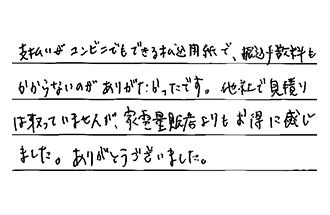 支払いがコンビニでもできる払込用紙で、振込手数料も
かからないのがありがたかったです。他社で見積り
は取っていませんが、家電量販店よりもお得に感じ
ました。ありがとうございました。